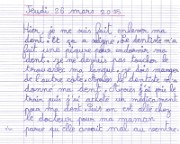 Jeudi 26 mars 2015
Hier, je me suis fait enlever ma
dent et ça a saigné. Le dentiste m'a
fait une piqûre pour endormir ma
dent. je ne dois pas toucher le
trou avec ma langue. je dois manger
de l'autre côté. Après le dentiste m'a
donné ma dent. Après j'ai pris le
train puis j'ai acheté un médicament
pour ma dent. Puis on est allé chez
le docteur pour ma maman
parce qu'elle avait mal au ventre.